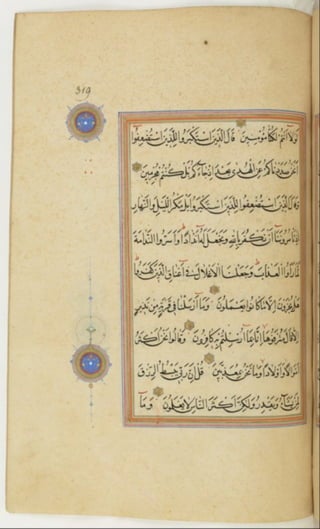 319
لولا انتم لكنا مؤمنين قال الذين استكبروا للذين استضعفوا
انحن صددناكم عن الهدى بعد اذ جاءكم بل كنتم مجرمين
وقال الذين استضعفوا للذين استكبروا بل مكر الليل والنهار
اذ تأمروننا ان نكفر بالله ونجعل له اندادا واسروا الندامة
لما راوا العذاب وجعلنا الاغلال في اعناق الذين كفروا
هل يجزون الا ما كانوا يعملون وما ارسلنا في قرية من نذير
الا قال مترفوها انا بما ارسلتم به كافرون وقالوا نحن اكثر
اموالا واولادا وما نحن بمعذبين قل ان ربي يبسط الرزق
لمن يشاء ويقدر ولكن اكثر الناس لا يعلمون وما